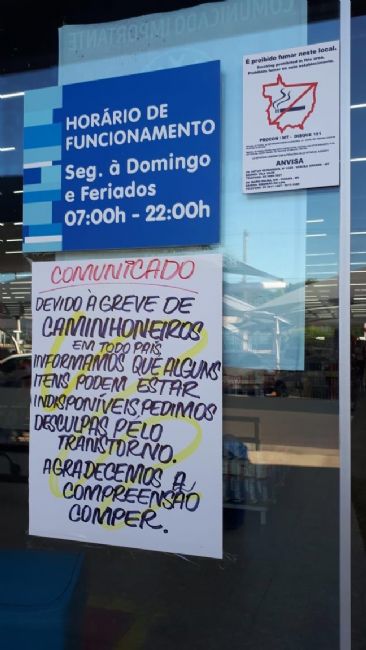 COMUNICADO IMPORTANTE
HORÁRIO DE
FUNCIONAMENTO
Seg. à Domingo
e Feriados
07:00h - 22:00h
É proibido fumar neste local.
Smoking prohibited in this area.
Prohibido fumar en este establecimiento.
PROCON - MT - DISQUE 151
ANVISA
COMUNICADO
DEVIDO À GREVE DE
CAMINHONEIROS
EM TODO PAÍS
INFORMAMOS QUE ALGUNS
ITENS PODEM ESTAR
INDISPONÍVEIS, PEDIMOS
DESCULPAS PELO
TRANSTORNO.
AGRADECEMOS A
COMPREENSÃO
COMPER.